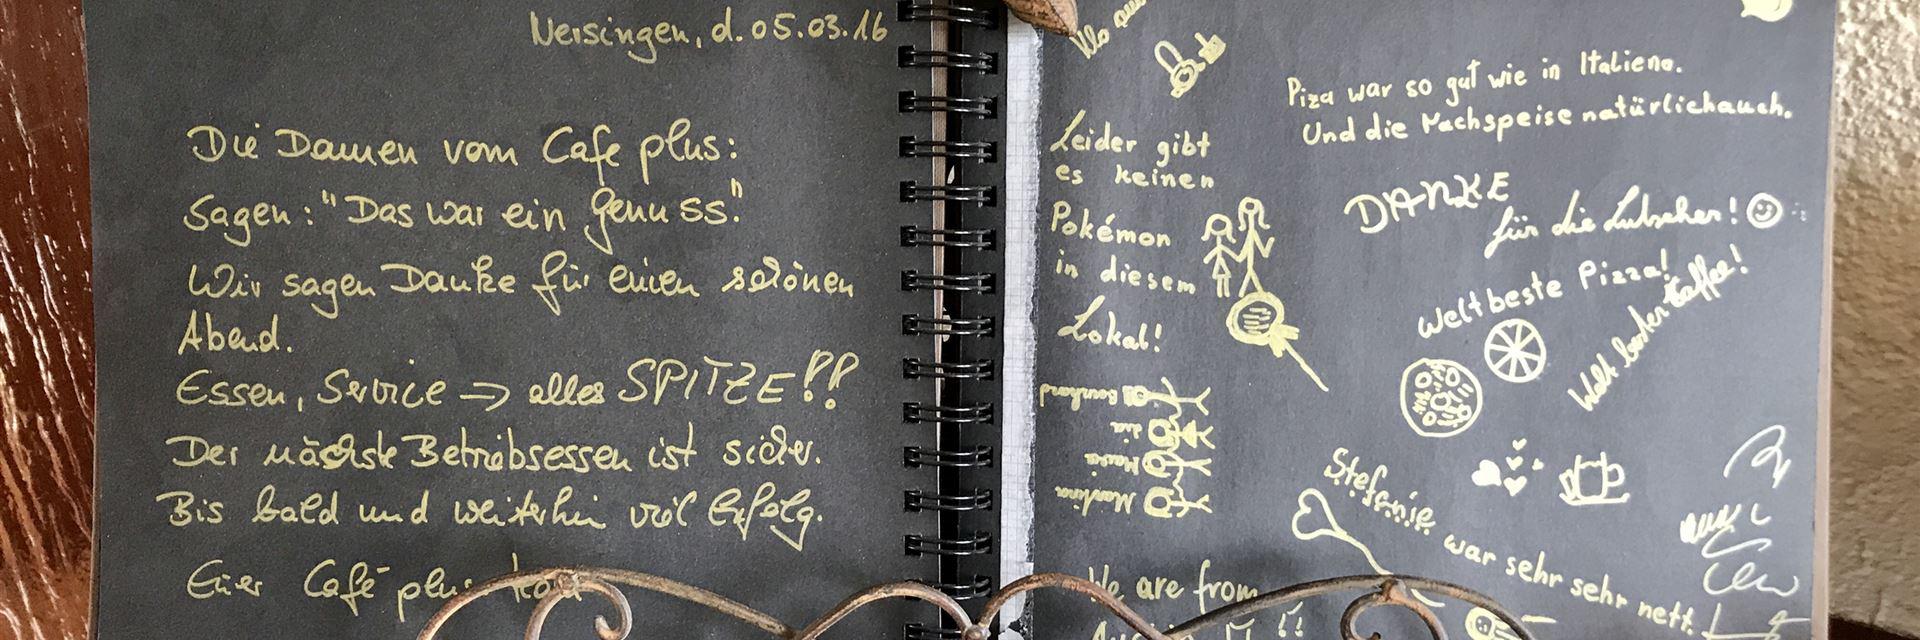 Nersingen, d. 05.03.16
Die Damen vom Cafe plus:
Sagen: "Das war ein Genuss".
Wir sagen Danke für einen schönen
Abend.
Essen, Service → alles SPITZE!!
Der nächste Betriebsessen ist sicher.
Bis bald und weiterhin viel Erfolg.
Euer Café plus
Leider gibt
es keinen
Pokémon
in diesem
Lokal!
Bernhard
Lia
Maria
Martina
We are from
Piza war so gut wie in Italieno.
Und die Nachspeise natürlichauch.
DANKE
für die Lutscher!
Weltbeste Pizza!
Welt bester Kaffee!
Stefanie war sehr sehr nett.